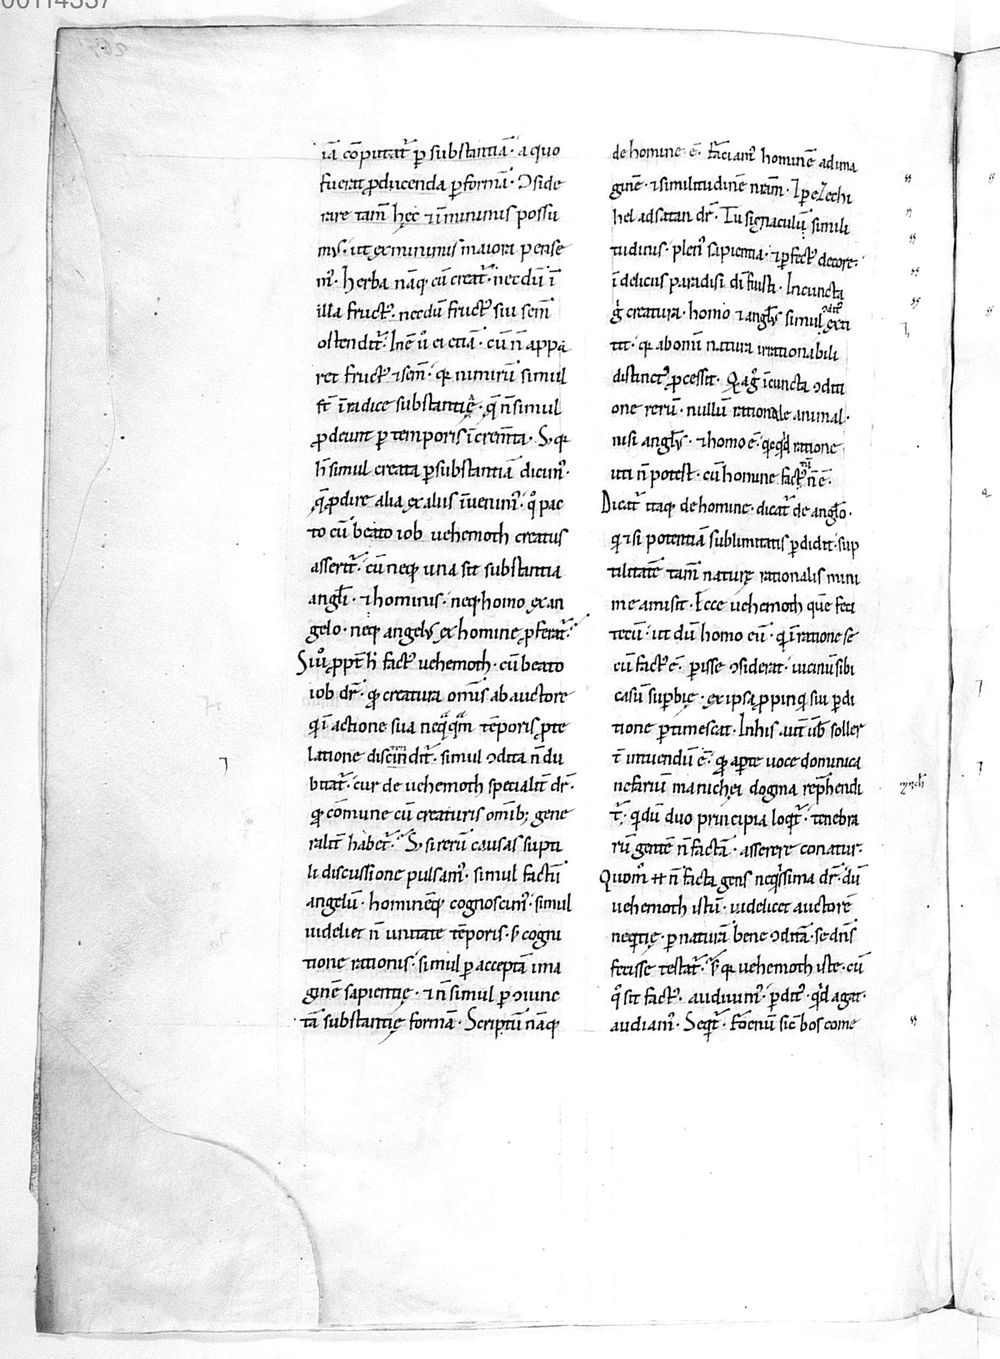 00114337
iā cōputat᷑ ꝑ substantiā· a quo
fuerat ꝓducenda ꝑ formā· Ɔside
rare tam̄ hęc ⁊ in minimis possu
mꝰ· ut ex minimis maiora pense
mꝰ· herba nāq; cū creat᷑· necdū ī
illa fructꝰ· necdū fructꝰ sui sem̄
ostendit᷑· Inē ů ei etiā· cū n̄ appa
ret fructꝰ ⁊ sem̄· q; nimirū simul
st̄ ī radice substantię· q̄ n̄ simul
ꝓdeunt ꝑ temporis īcrem̄ta· S; q;
h̄ simul creata ꝑ substantiā dicimꝰ·
q̄ ꝓdire alia ex aliis īvenimꝰ· qͦ pac
to cū beato iob uehemoth creatus
asserit᷑· cū neq; una sit substantia
angl̄i· ⁊ hominis· neq; homo ex an
gelo· neq; angelꝰ ex homine ꝓferat᷑·
Siů ꝓpt̄ h̄ factꝰ uehemoth· cū beato
iob dr̄· qꝫ creatura omīs ab auctore
q̄ ī actione sua neqͣqͣm tēporis ꝓte
latione discindit᷑· simul ɔdita n̄ du
bitat᷑· cur de uehemoth specialit̄ dr̄·
qꝫ cōmune cū creaturis omīb; gene
ralit̄ habet᷑· S; si rerū causas supti
li discussione pulsamꝰ· simul factū
angelū· hominēq; cognoscimꝰ· simul
uidelicet n̄ unitate tēporis· s; cogni
tione rationis· simul ꝑ acceptā ima
ginē sapientię· ⁊ n̄ simul ꝑ ɔiunc
tā substantię formā· Scriptū nāq;
de homine· ē· Faciamꝰ hominē ad ima
ginē· ⁊ similitudinē nr̄am· ⁊ ꝑ ezechi
hel ad satan dr̄· Tu signaculū simili
tudinis· plenꝰ sapientia· ⁊ ꝑfectꝰ decore·
ī deliciis paradisi di fuisti· In cuncta
ɔdita
g̊ creatura· homo ⁊ anglꝰ simul exti
tit· q; ab omni natura irrationabili
distinctꝰ ꝓcessit· Q̄a g̊ ī cuncta ɔditi
one rerū· nullū rationale animal·
nisi anglꝰ· ⁊ homo ē· q̄cq̄d ratione
uti n̄ potest· cū homine factꝰ n̄ ē·
Dicat᷑ itaq; de homine· dicat᷑ de anglo·
q̄ ⁊si potentiā sublimitatis ꝑdidit· sup
tilitatē tam̄ naturę rationalis mini
me amisit· Ecce uehemoth quē feci
tecū· ut dū homo eū· q̄ ī ratione se
cū factꝰ ē· ꝑisse ɔsiderat· uicinū sibi
casū suꝑbię· ex ipsa ꝓpinq̄ sui ꝑdi
tione ꝑtimescat· In his aut̄ ub̄ soller
t̄ intuendū ē· qꝫ aꝑte uoce dominica
nefariū manichei dogma rep̄hendi
t᷑· q̄ dū duo principia loqt᷑· tenebra
rū gentē n̄ factā· asserere conatur·
Quom̊ ⁊ n̄ facta gens neqͥssima dr̄· dū
uehemoth istū· uidelicet auctorē
neqtię· ꝑ naturā bene ɔditā· se dn̄s
fecisse testat᷑· S; q; uehemoth iste· cū
qͦ sit factꝰ· audiuimꝰ· ꝑditꝰ· qͥd agat·
audiamꝰ· Seqt᷑· Foenū sic̄ bos come